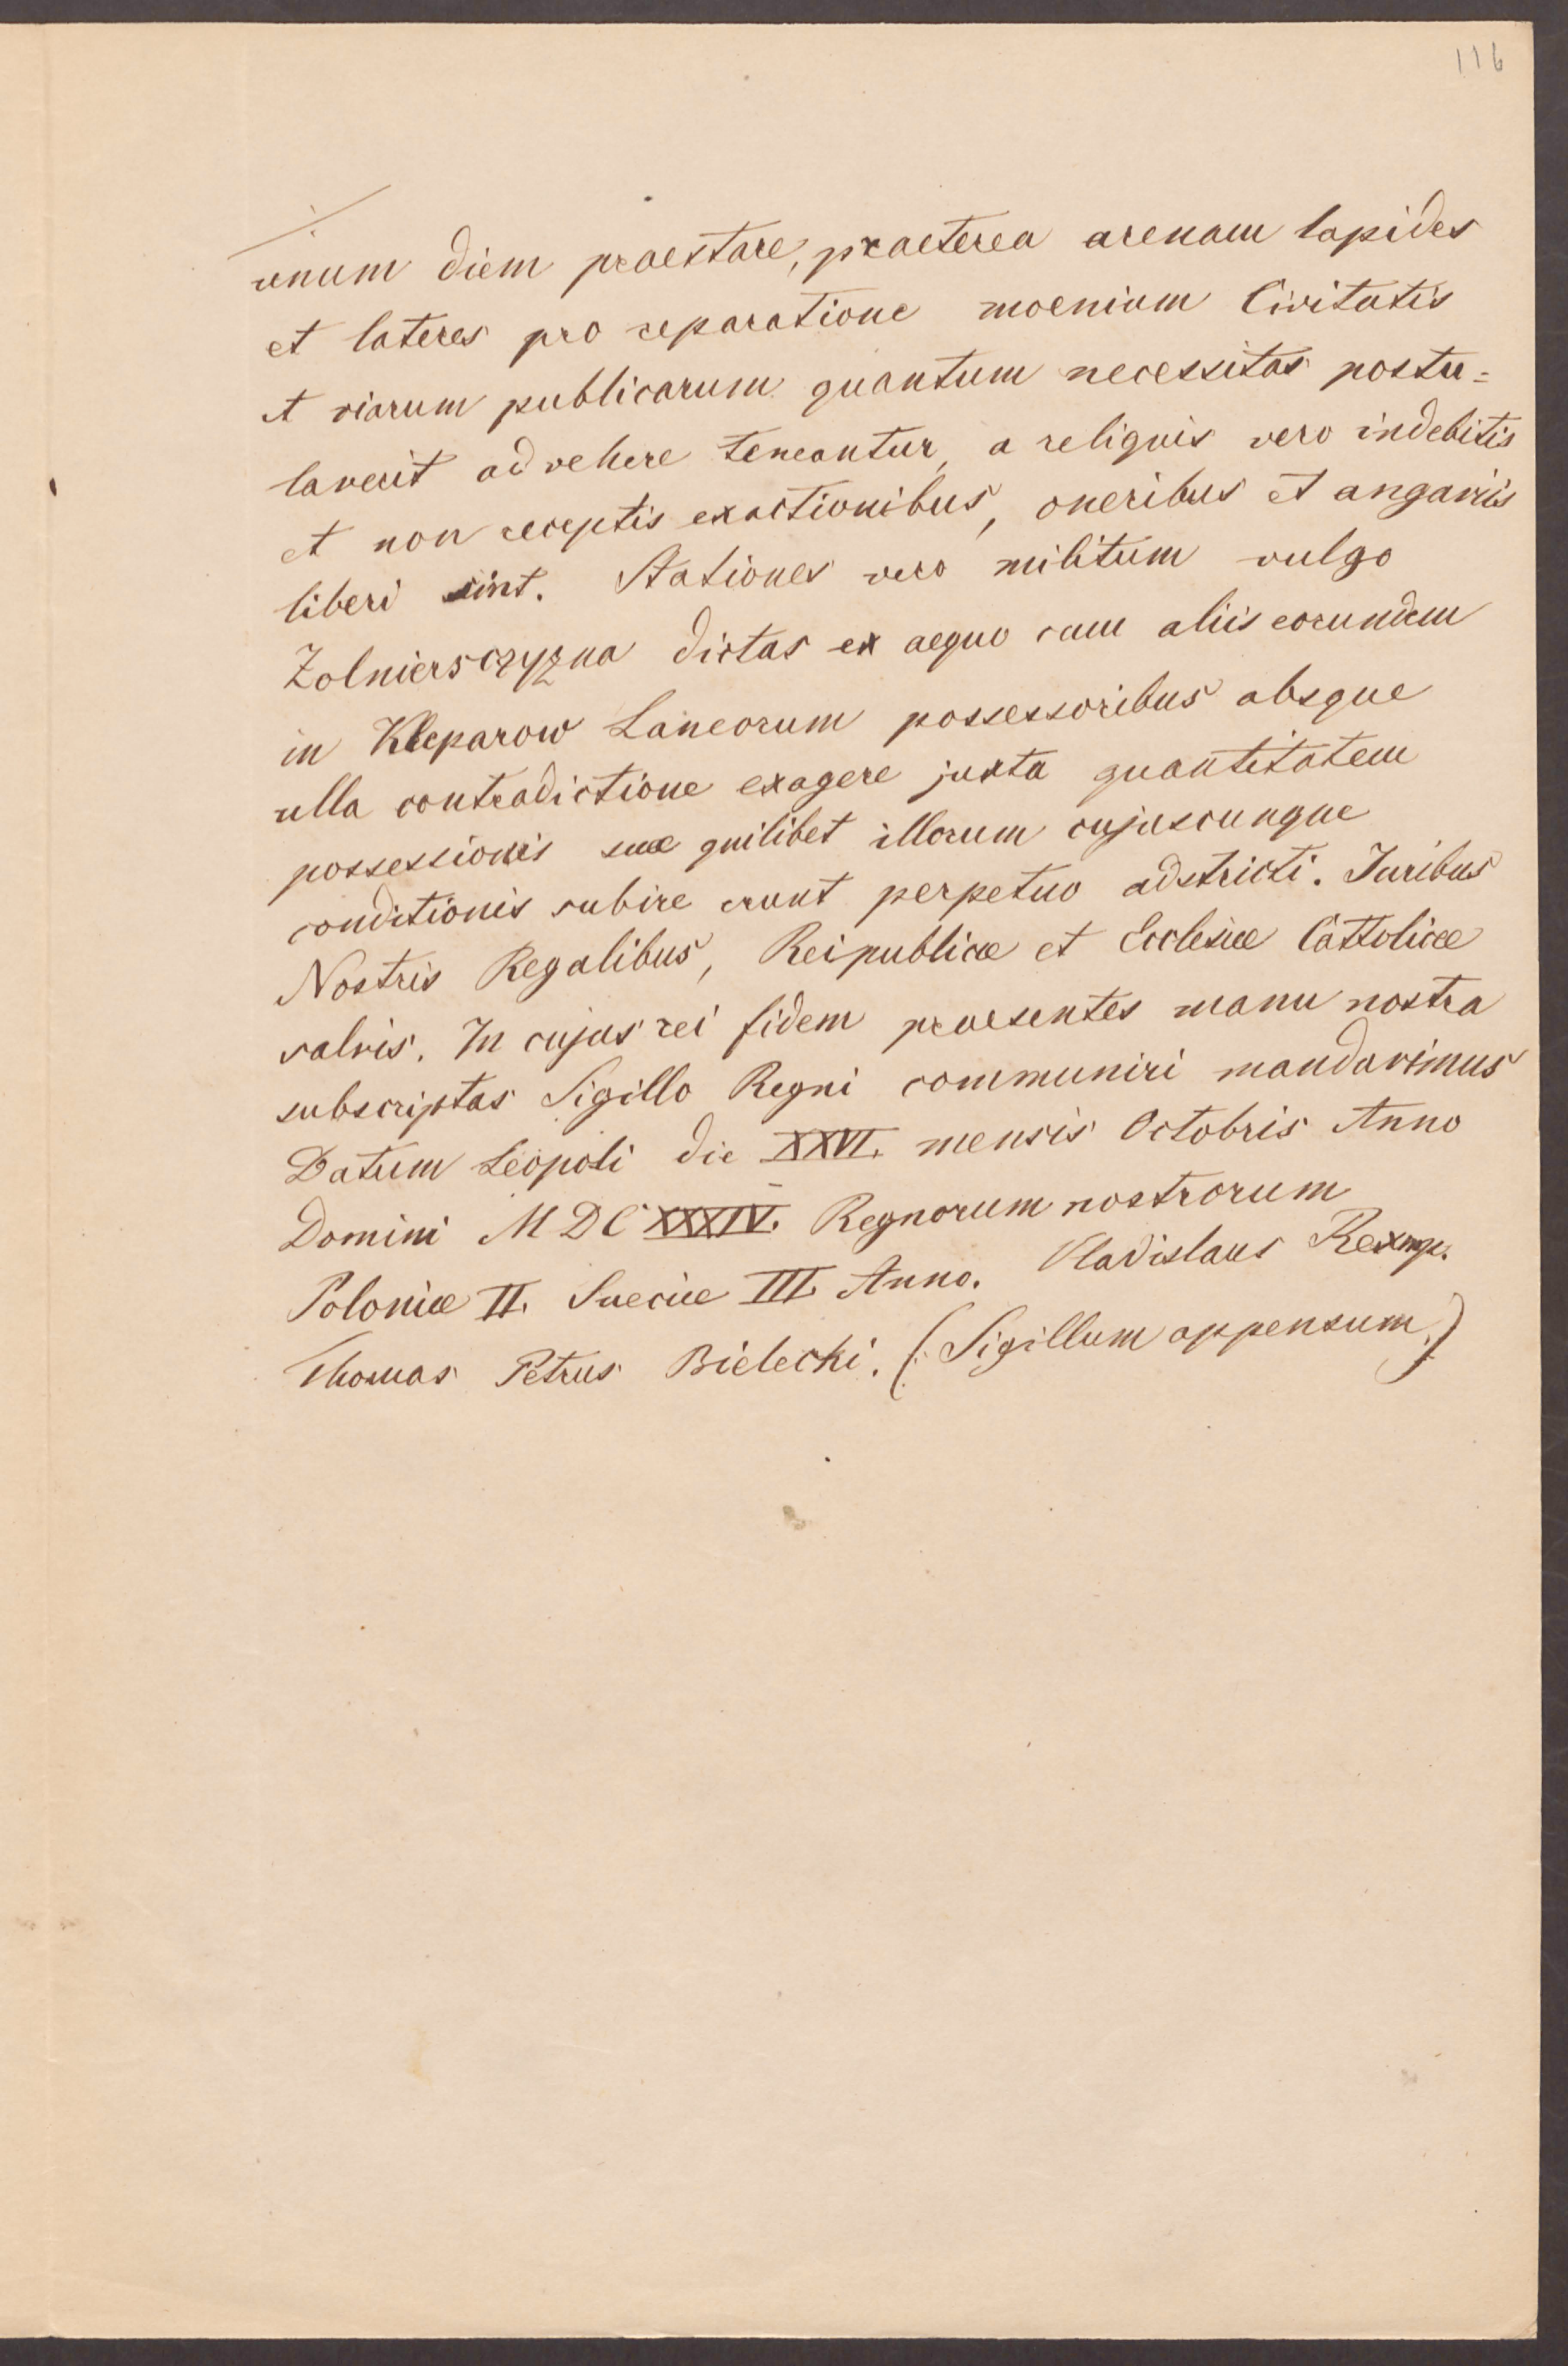 116
unum diem praestare, praeterea arenam lapides
et lateres pro reparatione moenium Civitatis
et viarum publicarum quantum necessitas postu=
laverit advehere teneantur, a reliquis vero indebitis
et non receptis exactionibus, oneribus et angariis
liberi sint. Stationes vero militum vulgo
Zolniersczyzna dictas ex aequo cum aliis eorundem
in Kleparow Laneorum possessoribus absque
ulla contradictione exagere juxta quantitatem
possessionis suae quilibet illorum cujuscunque
conditionis subire erunt perpetuo adstricti. Juribus
Nostris Regalibus, Reipublicæ et Ecclesiæ Cattolicæ
salvis. In cujus rei fidem praesentes manu nostra
subscriptas Sigillo Regni communiri mandavimus
Datum Leopoli die XXVI. mensis Octobris Anno
Domini MDCXXXIV. Regnorum nostrorum
Poloniæ II. Sueciæ III. Anno. Vladislaus Rex mp.
Thomas Petrus Bielecki. (: Sigillum appensum.)